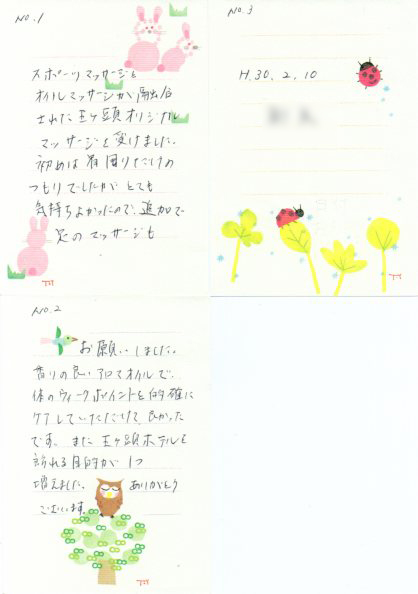 NO. 1
スポーツマッサージと
オイルマッサージが融合
された王ヶ頭オリジナル
マッサージを受けました。
初めは首周りだけの
つもりでしたがとても
気持ちよかったので、追加で
足のマッサージも
NO. 2
お願いしました。
香りの良いアロマオイルで、
体のウィークポイントを的確に
ケアしていただけて良かった
です。また王ヶ頭ホテルを
訪れる目的が1つ
増えました。ありがとう
ございます。
NO. 3
H.30.2.10